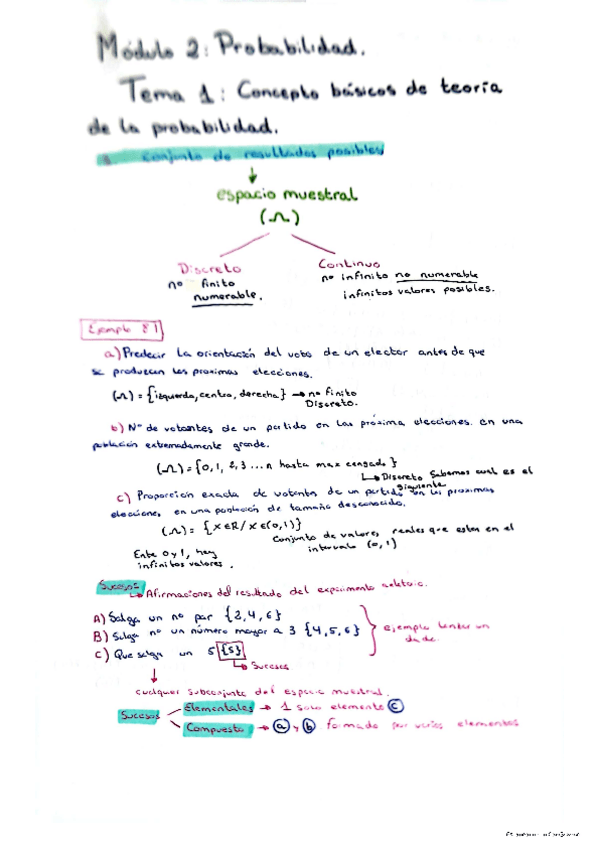 Módulo 2: Probabilidad.
Tema 1: Concepto básicos de teoría
de la probabilidad.
conjunto de resultados posibles
espacio muestral
(Ω)
Discreto
nº finito
numerable.
Continuo
nº infinito no numerable
infinitos valores posibles.
Ejemplo 8.1
a) Predecir la orientación del voto de un elector antes de que
se produzcan las proximas elecciones.
(Ω) = {izquierda, centro, derecha} → nº finito
Discreto.
b) Nº de votantes de un partido en las próxima elecciones. en una
población extremadamente grande.
(Ω) = {0, 1, 2, 3 ... n hasta max censado}
↳ Discreto Sabemos cual es el
siguiente
c) Proporción exacta de votantes de un partido en las proximas
elecciones, en una población de tamaño desconocido.
(Ω) = {X∈R/X∈(0,1)}
Conjunto de valores, reales que estan en el
intervalo (0,1)
Ente 0 y 1, hay
infinitos valores.
Sucesos
↳ Afirmaciones del resultado del experimento aleatorio.
A) Salga un nº par {2,4,6}
B) Salga nº un número mayor a 3 {4,5,6}
C) Que salga un 5 {5}
ejemplo lanzar un
dado
↳ Sucesos
cualquier subconjunto del espacio muestral.
Sucesos
Elementales → 1 solo elemento c
Compuesto → a y b formado por varios elementos